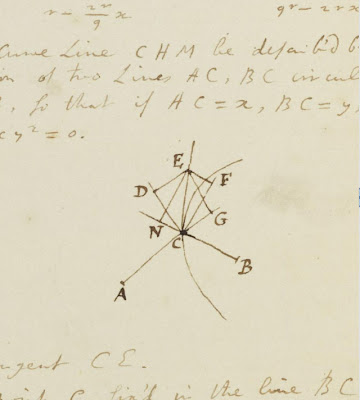 r - 2r/9 x
9r - 2rx
Curve Line CHM be describ'd b
on of two Lines AC, BC circul
, so that if AC = x, BC = y,
cy² = 0.
E
F
D
N
G
C
B
A
ngent CE.
C in the line BC